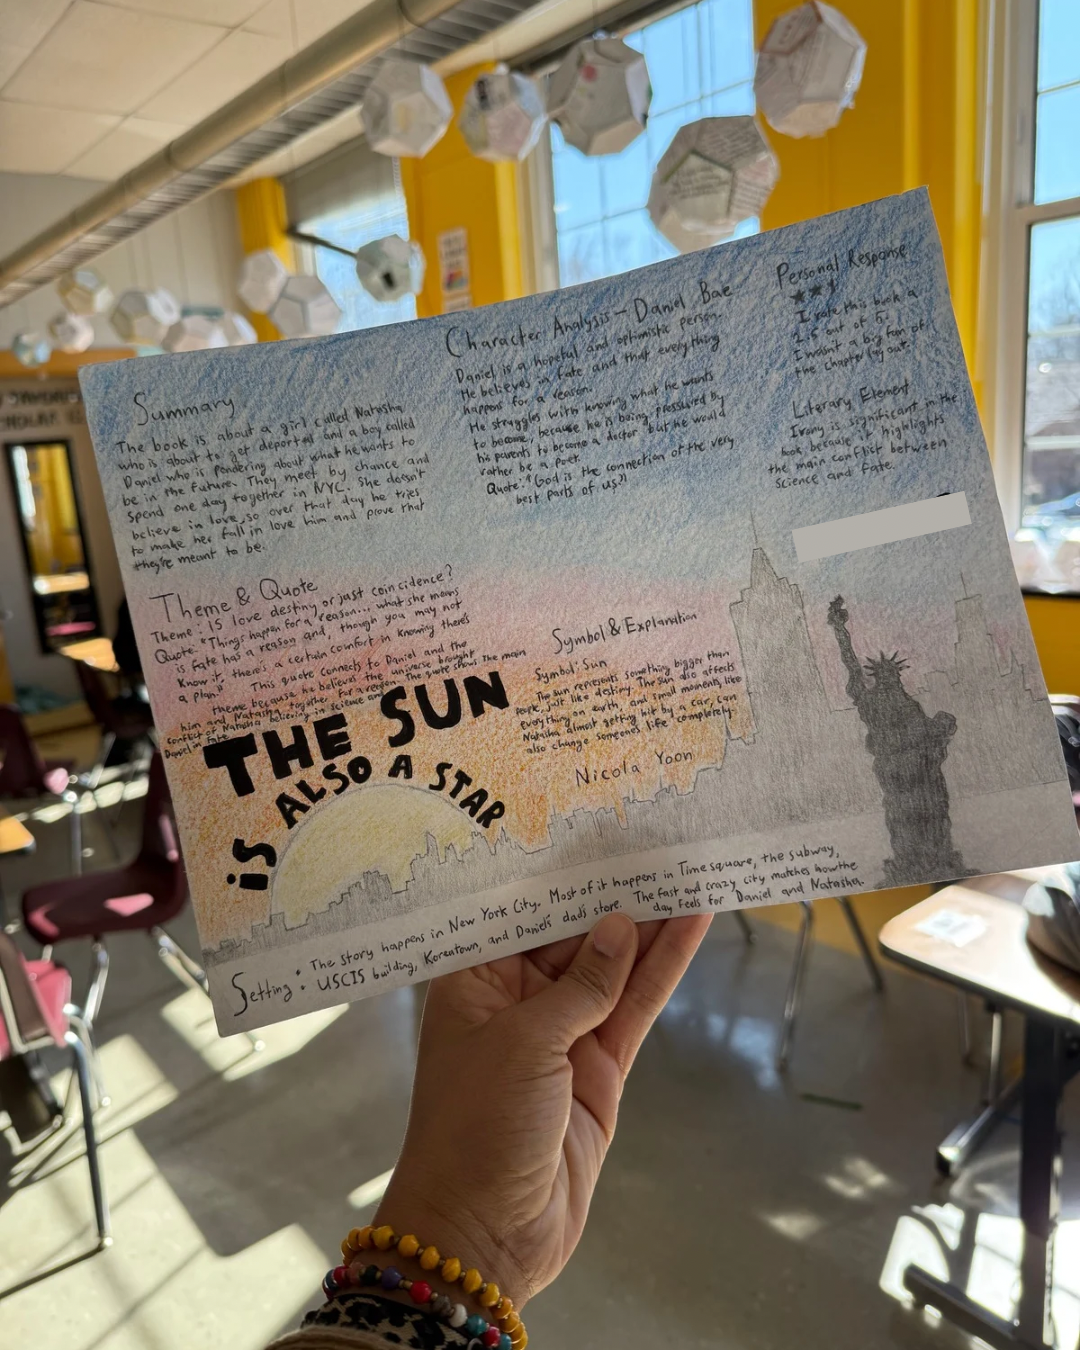 Summary
The book is about a girl called Natasha
who is about to get deported and a boy called
Daniel who is pondering about what he wants to
be in the future. They meet by chance and
spend one day together in NYC. She doesn't
believe in love, so over that day he tries
to make her fall in love him and prove that
they're meant to be.
Theme & Quote
Theme: IS love destiny or just coincidence?
Quote: "Things happen for a reason... what she means
is fate has a reason and, though you may not
Know it, there's a certain comfort in knowing there's
a plan" This quote connects to Daniel and the
theme because he believes the universe brought
him and Natasha together for a reason. The quote shows the main
conflict of Natasha believing in science and
Daniel in fate.
THE SUN
IS ALSO A STAR
Character Analysis - Daniel Bae
Daniel is a hopeful and optimistic person.
He believes in fate and that everything
happens for a reason.
He struggles with knowing what he wants
to become, because he is being pressured by
his parents to become a doctor but he would
rather be a poet.
Quote: "God is the connection of the very
best parts of us"
Symbol & Explanation
Symbol: Sun
The sun represents something bigger than
people, just like destiny. The sun also affects
everything on earth, and small moments, like
Natasha almost getting hit by a car, can
also change someones life completely.
Nicola Yoon
Personal Response
I rate this book a
2.5 out of 5.
I wasn't a big fan of
the chapter lay out.
Literary Element
Irony is significant in the
book because it highlights
the main conflict between
science and fate.
Setting: The story happens in New York City. Most of it happens in Time square, the subway,
USCIS building, Koreatown, and Daniel's dad's store. The fast and crazy city matches how the
day feels for Daniel and Natasha.